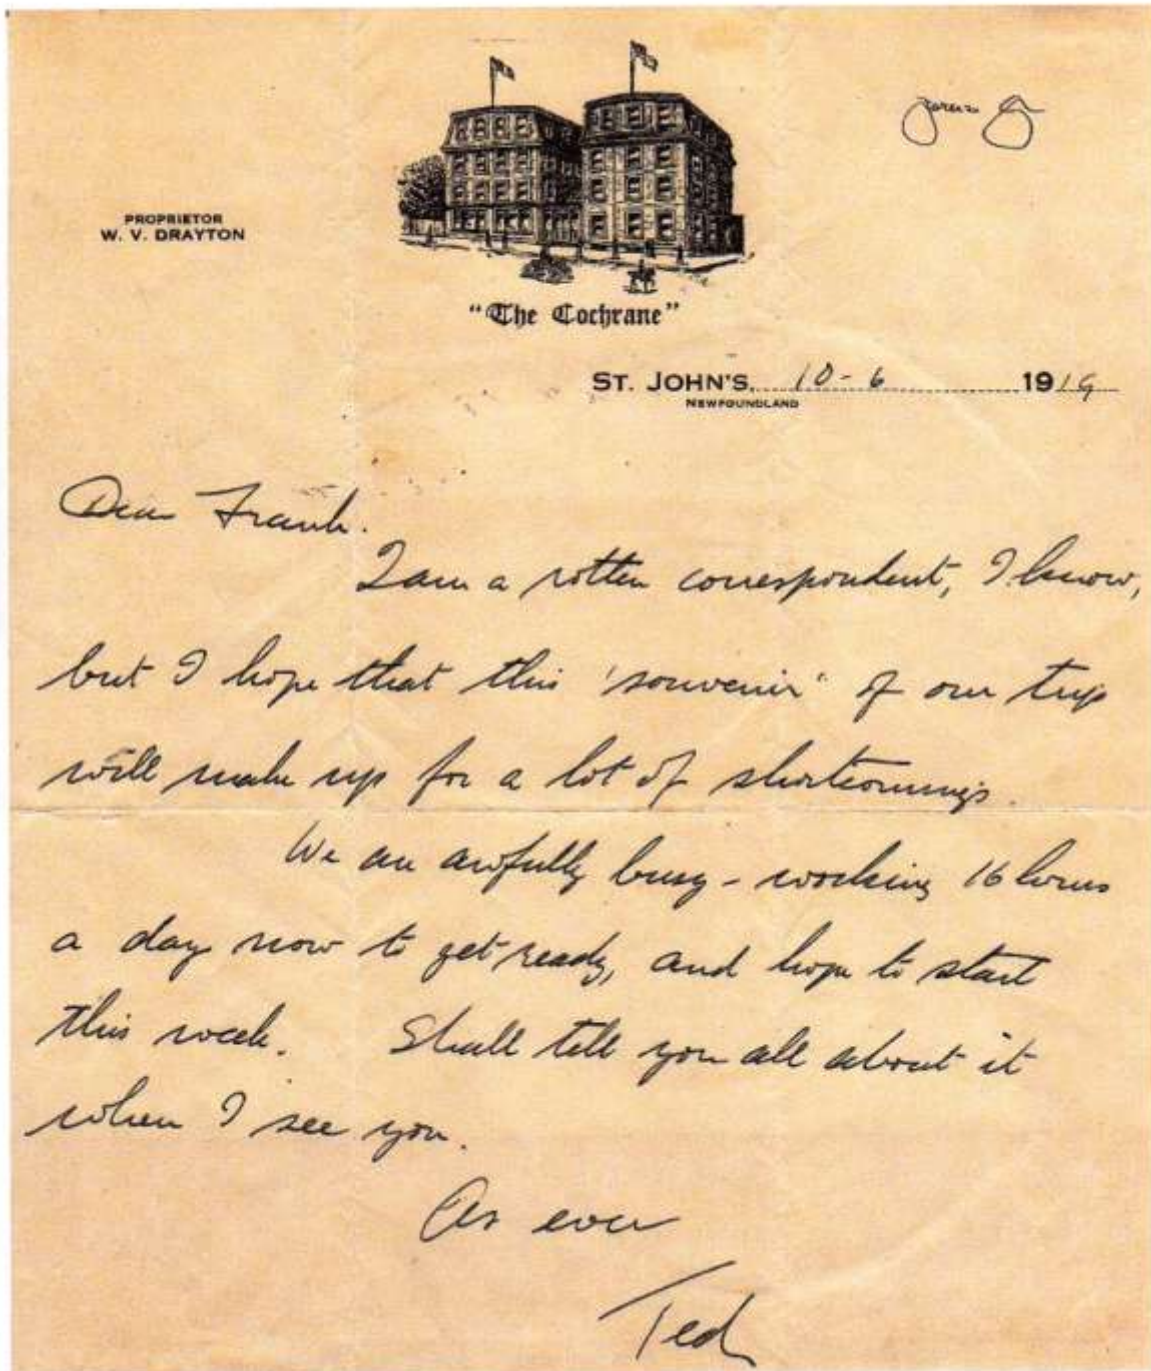 PROPRIETOR
W. V. DRAYTON
"The Cochrane"
ST. JOHN'S, 10-6 1919
NEWFOUNDLAND
Dear Frank.
I am a rotten correspondent, I know,
but I hope that this 'souvenir' of our trip
will make up for a lot of shortcomings.
We are awfully busy - working 16 hours
a day now to get ready, and hope to start
this week. Shall tell you all about it
when I see you.
As ever
Ted